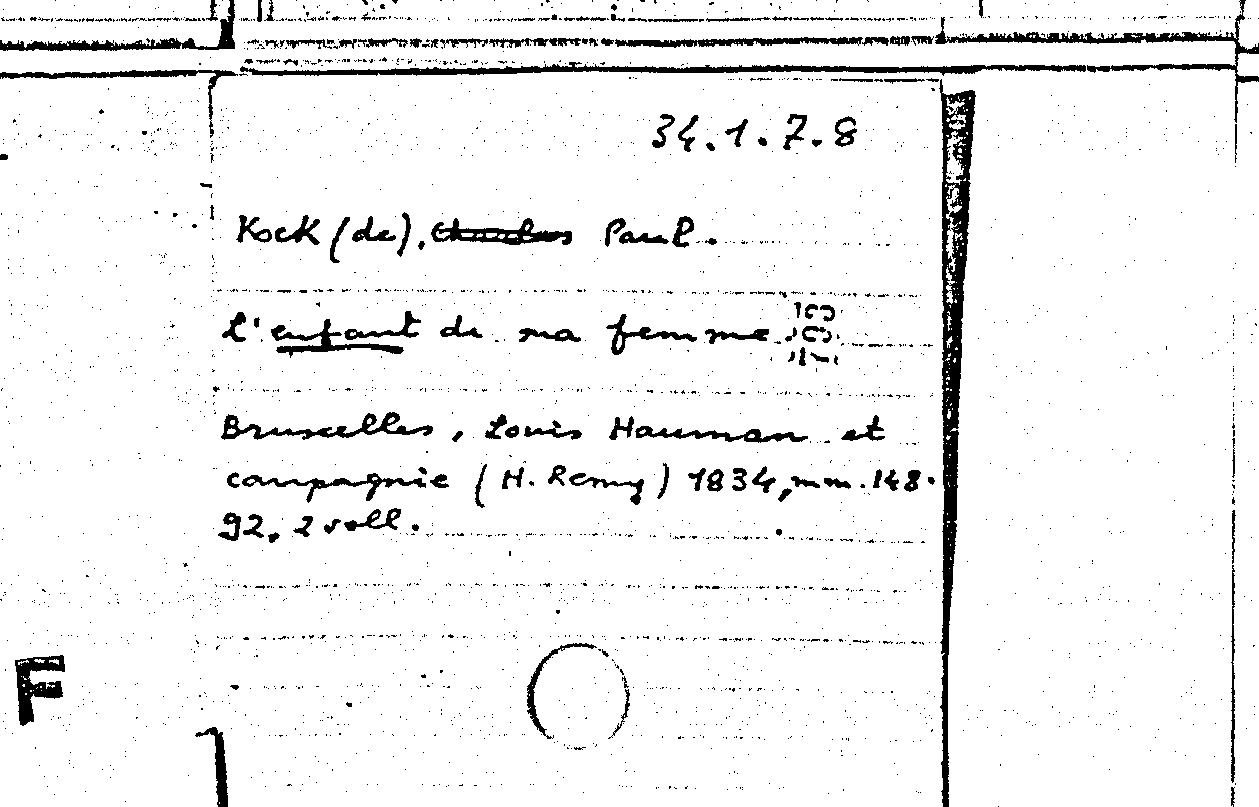 34.1.7.8
Kock (de), Charles Paul.
L'enfant de ma femme.
Bruxelles, Louis Hauman et
compagnie (H. Remy) 1834, mm. 148.
92. 2 voll.
F